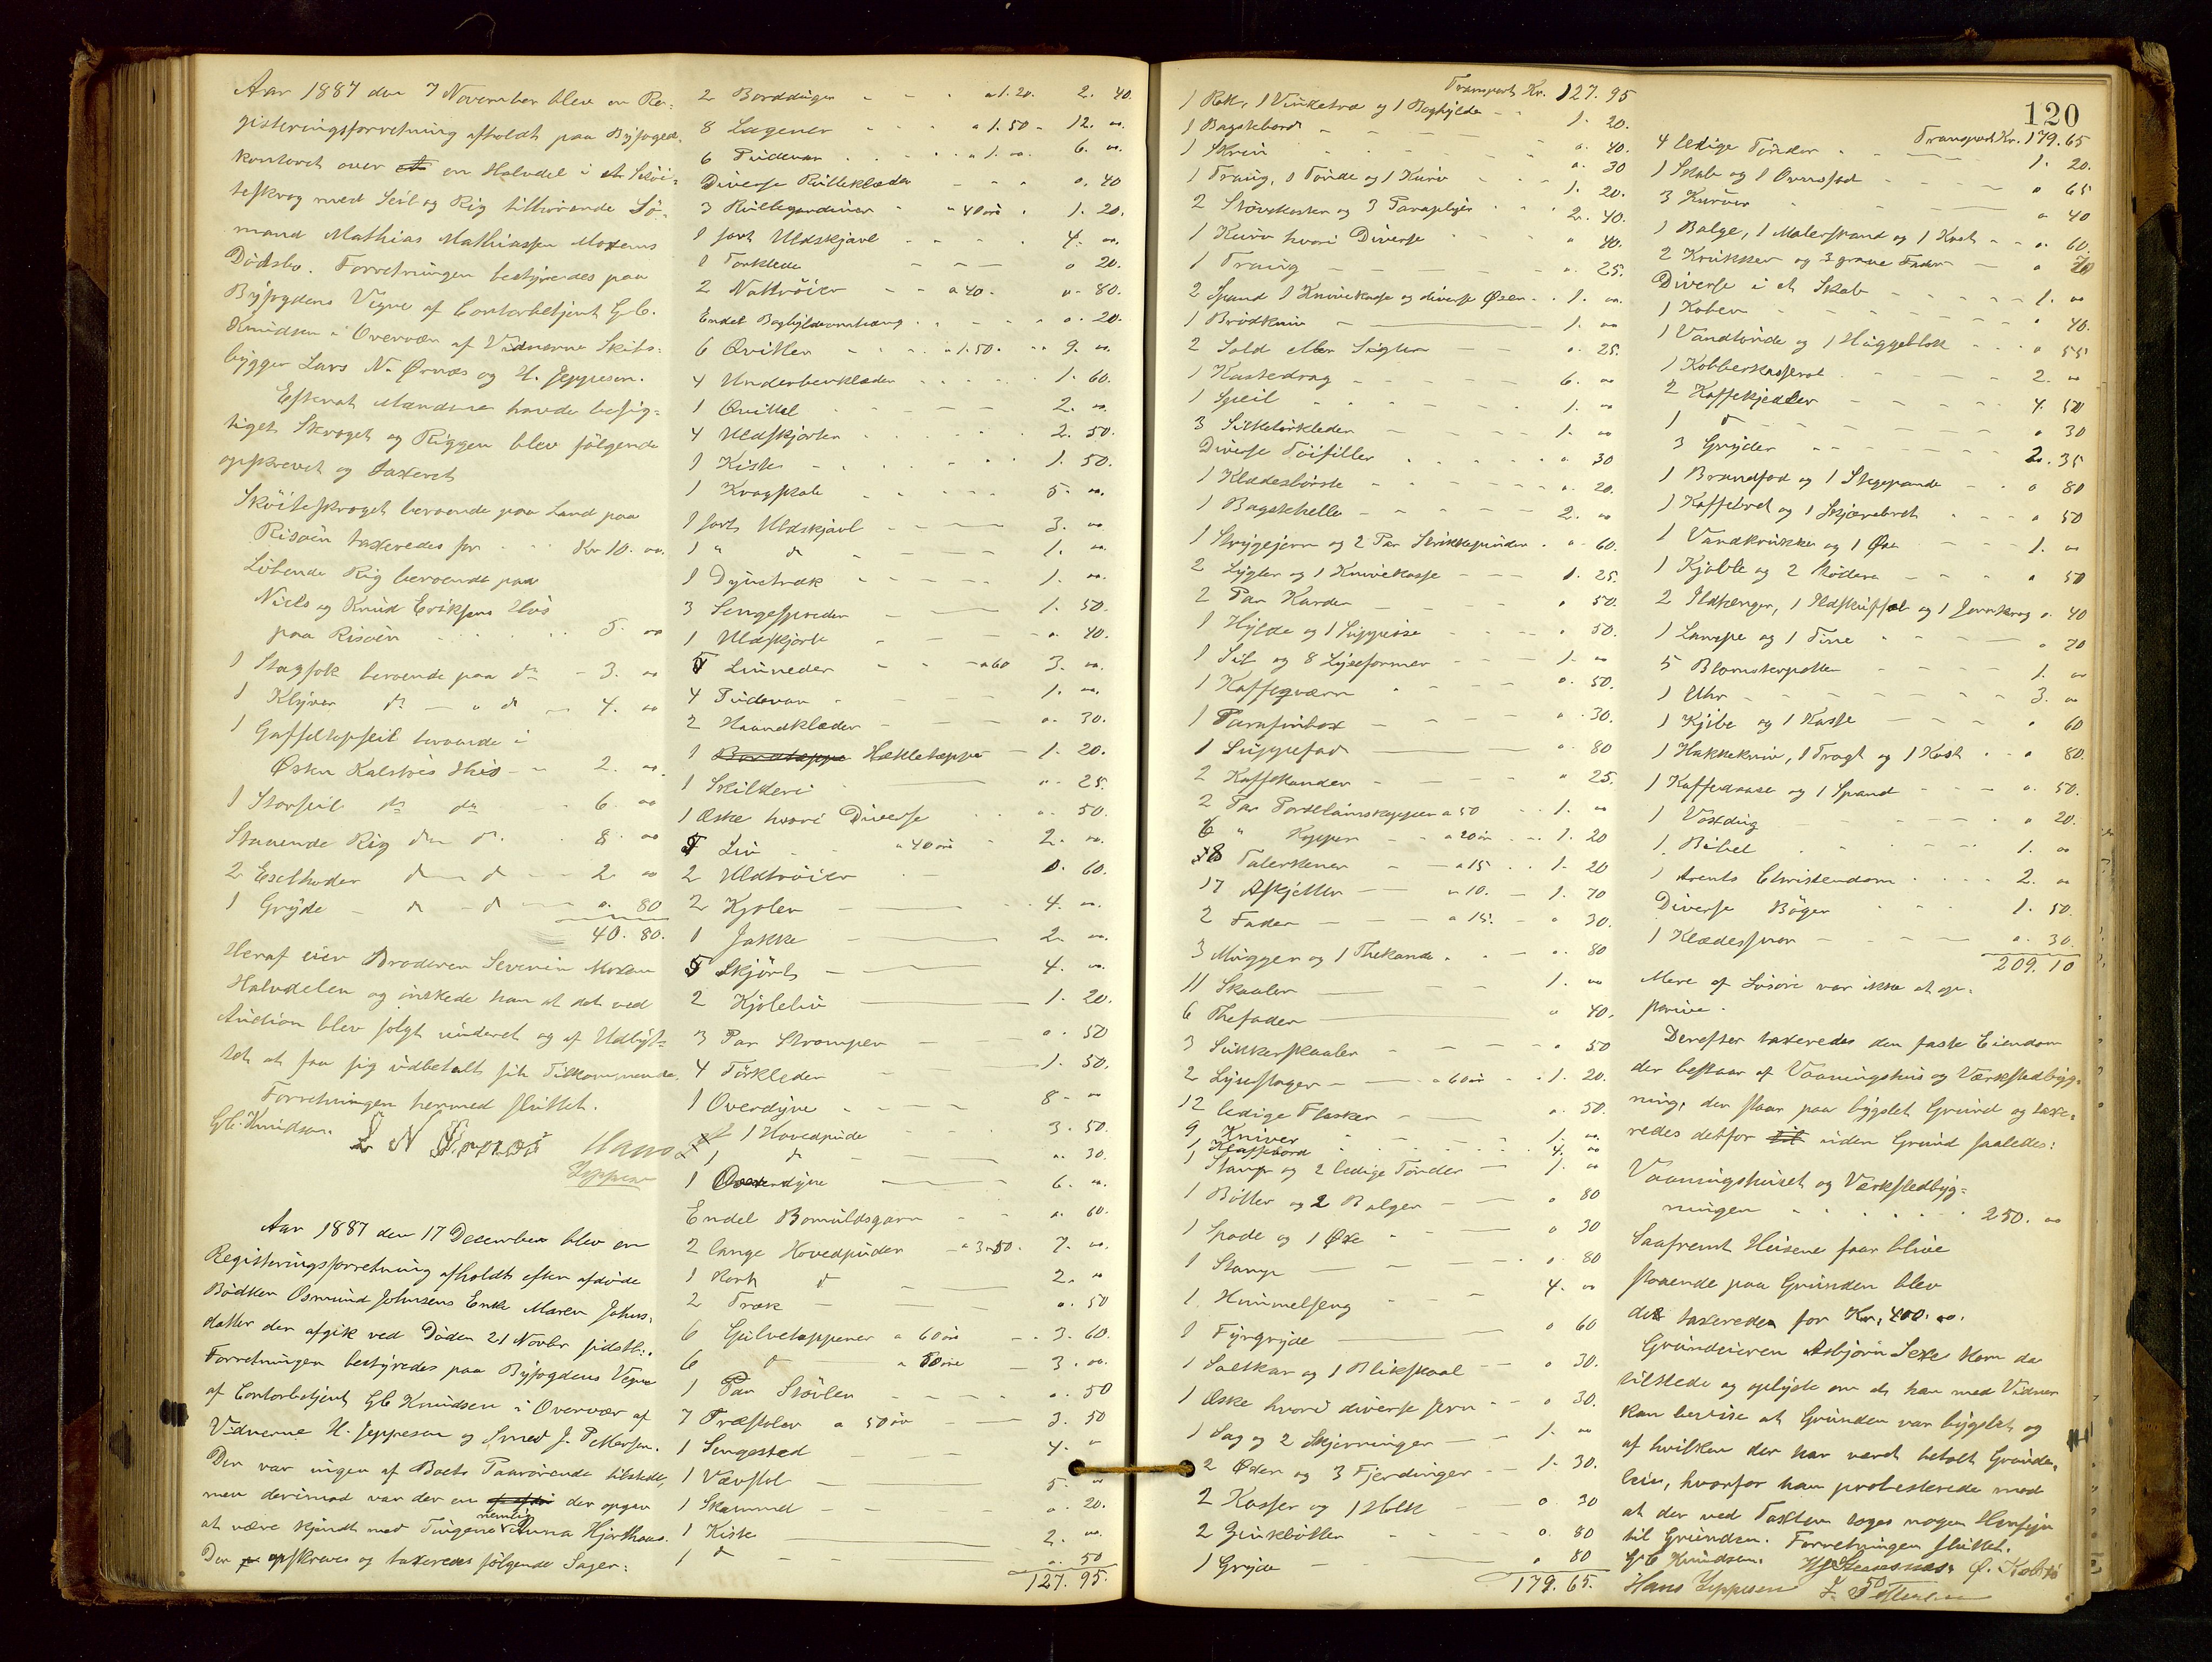 Aar 1887 den 7 November blev en Re-
gisteringsforretning afholdt paa Byfoged-
kontoret over en Halvdel i et Sköi-
teskrog med Seil og Rig tilhörende Sö-
mand Mathias Mathiassen Moxeness
Dödsbo. Forretningen bestyredes paa
Byfogdens Vegne af Contorbetjent G. C.
Knudsen i Overvær af Vidnerne Skibs-
bygger Lars N. Ørnæs og H. Jeppesen.
Efterat Mændene havde besig-
tiget Skroget og Riggen blev fölgende
opskrevet og taxeret
Sköiteskroget beroende paa Land paa
Risöen taxeredes for Kr 10. 00.
Löbende Rig beroende paa
Niels og Knud Eriksens Hus
paa Risöen 5. 00
1 Stagfok beroende paa do - 3. 00
1 Klyver do - " do - 4. 00
1 Gaffeltopseil beroende i
Østen Kalstös Hus - " 2. 00.
1 Storseil do do 6. 00
Staaende Rig do do 8. 00
2 Eselhoder do do 2. 00
1 Gryde - do - do 0. 80
40. 80.
Heraf eier Broderen Severin Moxnes
Halvdelen og önskede han at det ved
Auction blev solgt underet og af Udbyt-
tet at faa sig udbetalt sit Tilkommende.
Forretningen hermed sluttet.
G. C. Knudsen. L N Ørnes Hans
Jeppesen
Aar 1887 den 17 December blev en
Registeringsforretning afholdt efter afdöde
Bödker Osmund Johnsens Enke Maren Johns-
datter der afgik ved Döden 21 Novbr sidstl.
Forretningen bestyredes paa Byfogdens Vegne
af Contorbetjent G. C. Knudsen i Overvær af
Vidnerne H. Jeppesen og Smed J. Pettersen.
Der var ingen af Boets Paarörende tilstede,
men derimod var der en der opgav
at være kjendt med Tingene nemlig Anna Hjorthaas.
Der opskreves og taxeredes fölgende Sager:
2 Borddúger - - a 1.20. 2. 40.
8 Lagener a 1.50 - 12. 00.
6 Púdevar a 1. 00. 6. 00.
Diverse Rúlleklæder 0. 40
3 Rúllegardiner a 40 öre 1. 20.
1 sort Uldskjavl 4. 00.
1 Törklede 0 20.
2 Nattröier a 40. 0. 80.
Endel Boghyldeomhæng 0. 20.
6 Qvitler a 1.50. 9. 00.
4 Underbenklæder 1. 60.
1 Qvittel 2. 00.
4 Uldskjorter 2. 50.
1 Kiste 1. 50.
1 Kragskab 5. 00.
1 sort Uldskjavl 3. 00
1 " do 1. 00.
1 Dynetræk 1. 00.
3 Sengespreder 1. 50.
1 Uldskjorte 0. 40.
5 Linneder a 60 3. 00.
4 Púdevar 1. 00.
2 Haandklæder 0. 30.
1 Hækletæppe 1. 20.
1 Skilderi 0. 25.
1 Æske hvori Diverse 0. 50.
5 Liv a 40 öre 2. 00.
2 Uldtröier 0. 60.
2 Kjoler 4. 00.
1 Jakke 2. 00.
5 Skjörts 4. 00.
2 Kjoleliv 1. 20.
3 Par Strømper 0. 50
4 Törkleder 1. 50.
1 Overdyne 8 - 00
1 Hovedpúde 3. 50.
1 do 0. 30.
1 Overdyne 6. 00.
Endel Bomuldsgarn 0. 60.
2 lange Hovedpúder a 3.50. 7. 00.
1 kort do 2. 00
2 Træk 0. 50
6 Gúlvetæppener a 60 öre 3. 60.
6 do a 50 öre 3. 00.
1 Par Stövler 0. 50
7 Træstoler a 50 öre 3. 50
1 Sengested 4. 00
1 Vævstol 5. 00
1 Skammel 0. 20.
1 Kiste 2. 00.
1 do 0. 50
127. 95.
120
Transport Kr. 127. 95
1 Rok, 1 Vindetræ og 1 Boghylde 1. 20.
1 Bagstebord 0. 40.
1 Skrin 0. 30
1 Traug, 1 Tönde og 1 Kurv 1. 20.
2 Stövekoster og 3 Paraplyer 2. 40.
1 Kurv hvori Diverse 0 40.
1 Traug 0. 25.
2 Spand 1 Knivekasse og diverse Øser 1. 00.
1 Brödkniv 1. 00
2 Sold eller Sigter 0. 25.
1 Kastedrag 6. 00
1 Speil 1. 00
3 Silketörkleder 1. 00
Diverse Töifiller 0. 30
1 Klædesbörste 0. 20.
1 Bagstehelle 2. 00
1 Strygejern og 2 Par Strikkepinder 0. 60.
2 Lygter og 1 Knivekasse 1. 25.
2 Par Karder 0 50.
1 Hylde og 1 Súppeöse 0 50.
1 Sil og 8 Lyseformer 1. 00
1 Kaffeqværn 0. 50.
1 Parafinbox 0. 30.
1 Súppefad 0. 80
2 Kaffekander 0 25.
2 Par Porselainskopper a 50 1. 00
6 " Kopper a 20 öre 1. 20
8 Talerkener a 15 1. 20
17 Asjetter a 10. 1. 70
2 Fader a 15. 0 30.
3 Múgger og 1 Thekande 0. 80
11 Skaaler 1. 00
6 Thefader 0 40.
3 Súkkerskaaler 0 50
2 Lysestager a 60 öre 1. 20.
12 ledige Flasker 0. 50.
9 Kniver 1. 00.
1 Klapbord 4. 00
1 Stamp og 2 ledige Tönder 1. 00
1 Bötte og 2 Balger 0 80
1 Spade og 1 Øxe 0 30
1 Stamp 0. 80
1 Himmelseng 4. 00
1 Fyrgryde 0 60
1 Saltkar og 1 Blikskaal 0 30.
1 Æske hvori diverse Jern 0 30.
1 Sag og 2 Skjerninger 1. 00
2 Øxer og 3 Fjerdinger 1. 30.
2 Kasser og 1 Holk 0 30
2 Zinkbötter 0. 80
1 Gryde 0 80
179. 65.
Transport Kr. 179. 65
4 ledige Tönder 1. 20.
1 Skab og 1 Ovnsfad 0 65
3 Kurver 0 40
1 Balge, 1 Malerspand og 1 Kost 0. 60.
2 Krúkker og 3 graae Fader 0 70
Diverse i et Skab 1. 00
1 Koben 0 40.
1 Vandtönde og 1 Húggeblok 0 55
1 Kobberkasserol 2. 00
2 Kaffekjedler 4. 50
1 do 0 30
3 Gryder 2. 35
1 Brændfad og 1 Stegepande 0 80
1 Kaffebret og 1 Skjærebret 0 50
1 Vandkrúkke og 1 Øse 1. 00
1 Kjolle og 2 0 50
2 Ildtenger, 1 Ildskúffel og 1 Jernkrog 0. 40
1 Lampe og 1 Tine 0 70
5 Blomsterpotter 1. 00
1 Uhr 3. 00
1 Kjibe og 1 Kasse 0 60
1 Hakkekniv, 1 Tragt og 1 Kost 0 80.
1 Kaffedaase og 1 Spand 0. 50.
1 Voxdug 0 20.
1 Bibel 1. 00
1 Arents Christendom 2. 00
Diverse Böger 1. 50.
1 Klædessnor 0. 30.
209. 10
Mere af Lösöre var ikke at op-
skrive.
Derefter taxeredes den faste Eiendom
der bestaar af Vaaningshus og Værkstedbyg-
ning, der staar paa bygslet Grund og taxe-
redes detfor uden Grund saaledes:
Vaaningshuset og Værkstedbyg-
ningen 250. 00
Saafremt Husene faar blive
staaende paa Grunden blev
det taxeredes for Kr. 400. 00.
Grundeieren Asbjörn Sexe kom da
tilstede og oplyste om at han med Vidner
kan bevise at Grunden var bygslet og
af hvilken der har været betalt Grunde-
leie, hvorfor han protesterede mod
at der ved Taxten toges nogen Hensyn
til Grunden. Forretningen sluttet.
G. C. Knudsen. Ø. Kalstö
Hans Jeppesen J. Pettersen